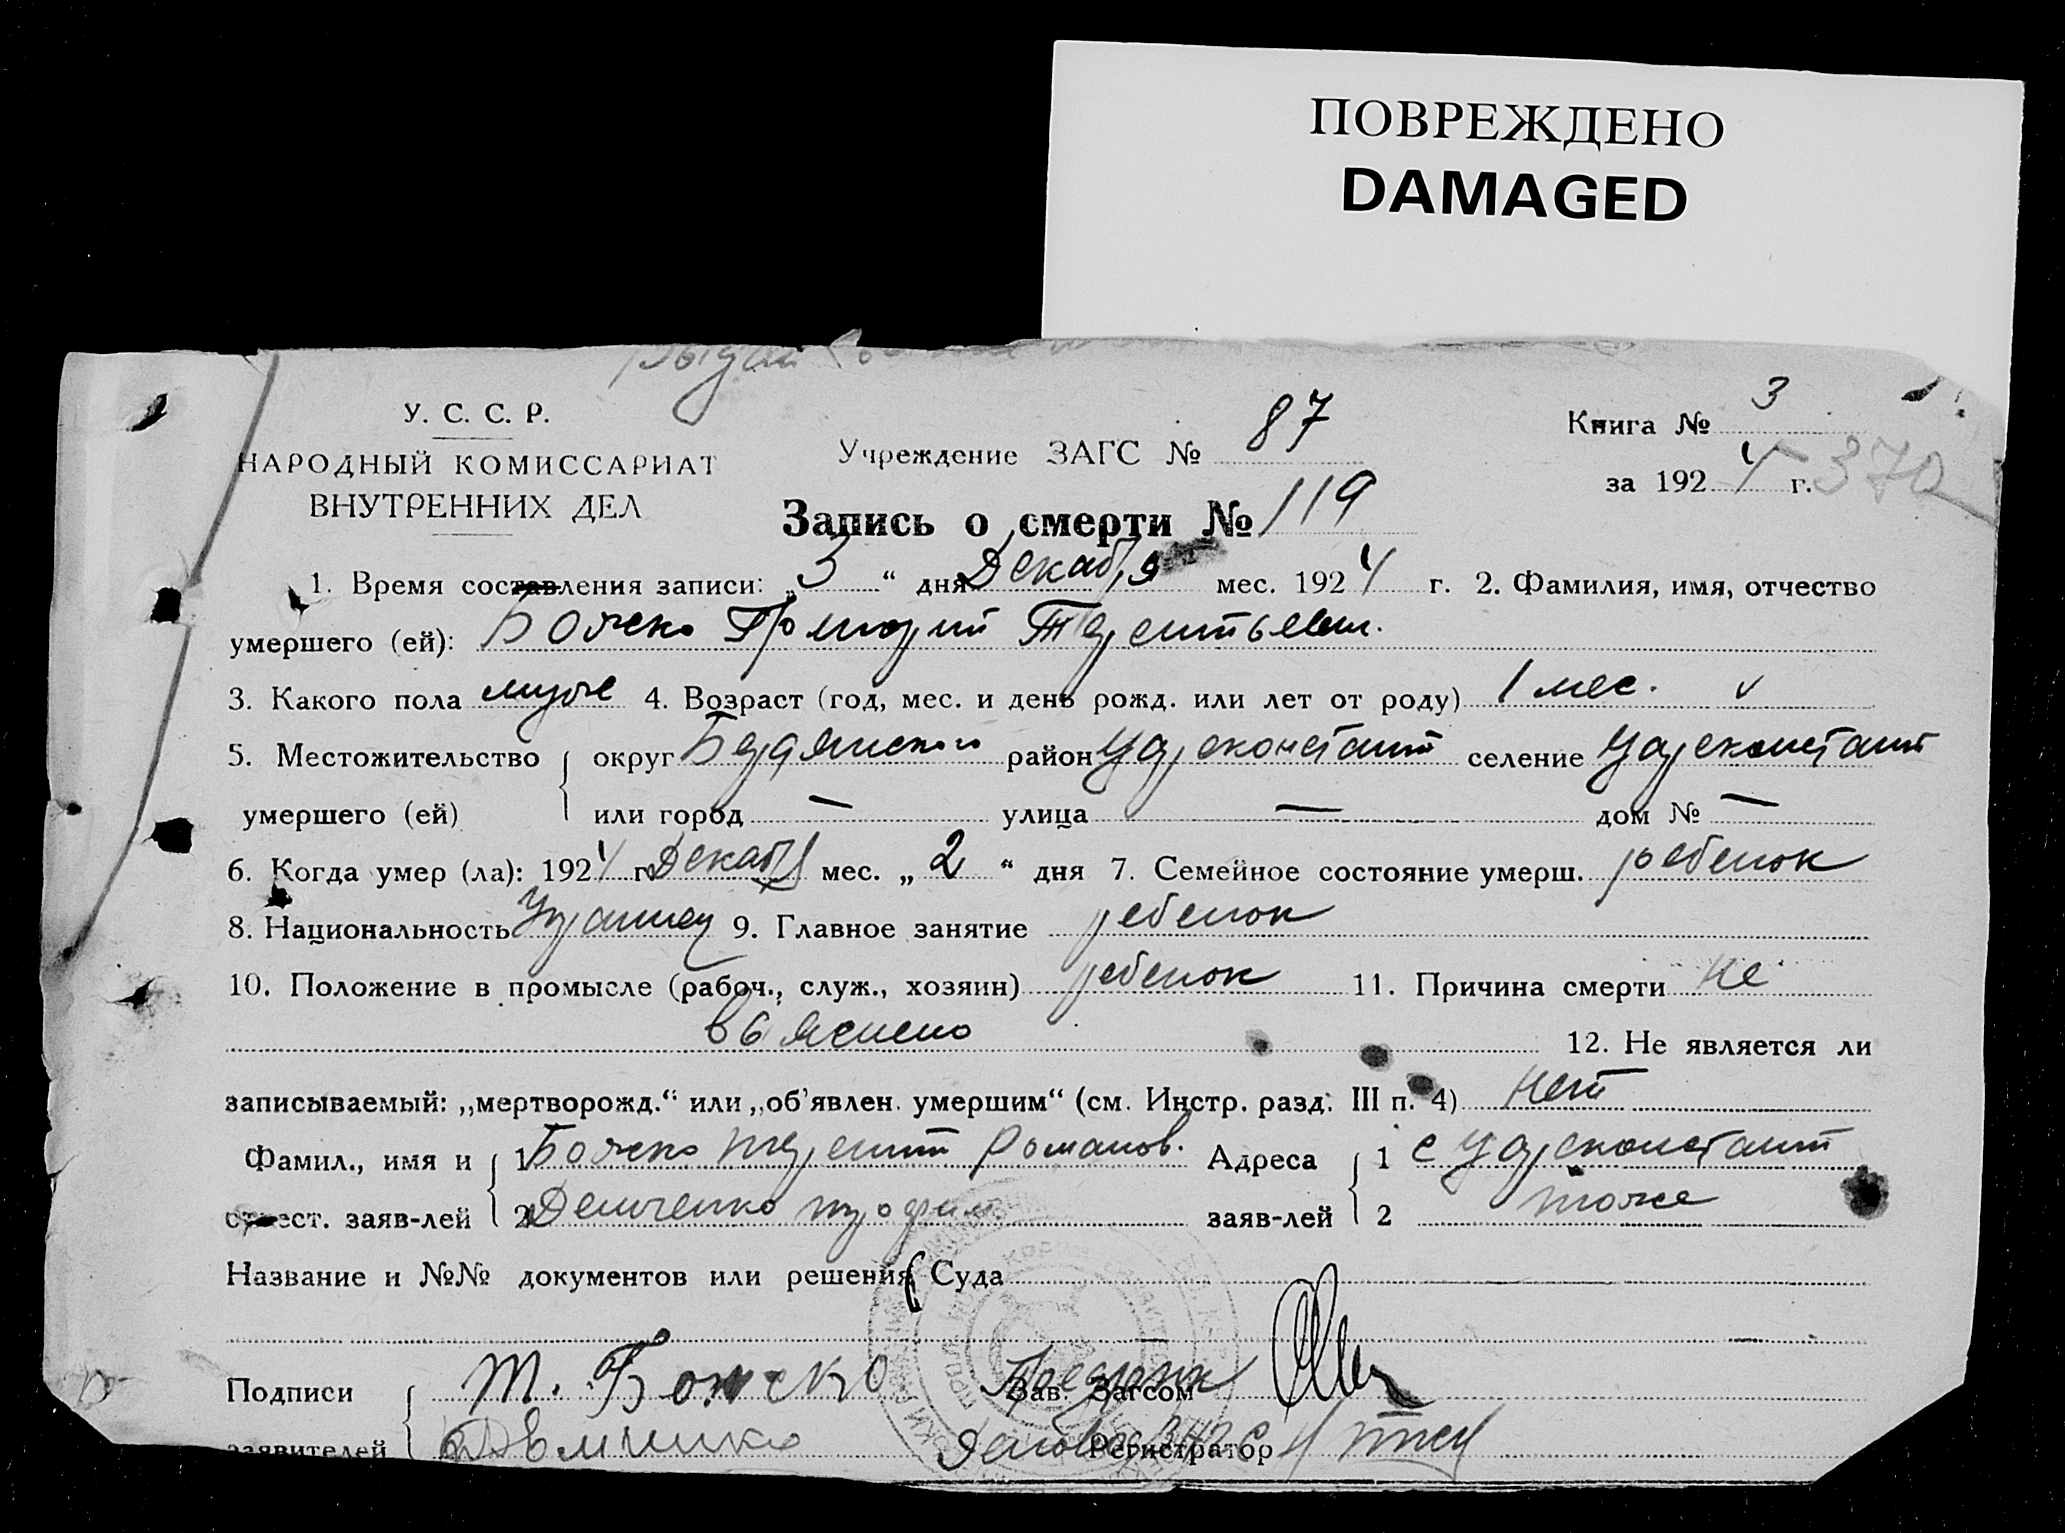 ПОВРЕЖДЕНО
DAMAGED
У. С. С. Р.
НАРОДНЫЙ КОМИССАРИАТ
ВНУТРЕННИХ ДЕЛ
Учреждение ЗАГС № 87
Книга № 3
за 1924 г. 370
Запись о смерти № 119
1. Время составления записи: „3“ дня Декабря мес. 1924 г. 2. Фамилия, имя, отчество
умершего (ей): Божко Терентьевич.
3. Какого пола муж 4. Возраст (год, мес. и день рожд. или лет от роду) 1 мес. v
5. Местожительство округ район Цареконстант селение Цареконстант
умершего (ей) или город — улица — дом № —
6. Когда умер (ла): 1924 г. Декабря мес. „2“ дня 7. Семейное состояние умерш. ребенок
8. Национальность Украинец 9. Главное занятие ребенок
10. Положение в промысле (рабоч., служ., хозяин) ребенок 11. Причина смерти не
выяснено 12. Не является ли
записываемый: „мертворожд.“ или „об'явлен. умершим“ (см. Инстр. разд. III п. 4) нет
Фамил., имя и 1 Божко Терентий Романов. Адреса 1 с Цареконстант
отчест. заяв-лей 2 Демченко Трофим заяв-лей 2 тоже
Название и №№ документов или решения Суда
Подписи Т. Божко Зав. Загсом
заявителей Регистратор